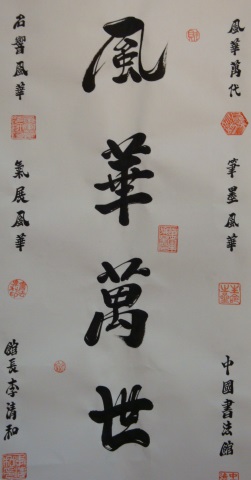 風華萬代
筆墨風華
中國書法館
風華萬世
名譽風華
氣展風華
館長李清和